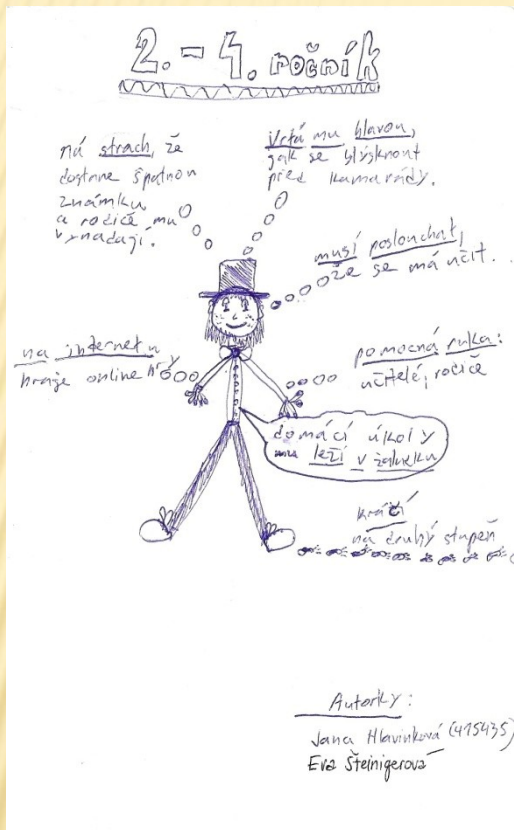 2. - 4. ročník
má strach, že
dostane špatnou
známku
a rodiče mu
vynadají.
Vrtá mu hlavou,
jak se blýsknout
před kamarády.
musí poslouchat,
že se má učit.
na internetu
hraje online hry
pomocná ruka:
učitelé, rodiče
domácí úkoly
mu leží v žaludku
kráčí
na druhý stupeň
Autorky:
Jana Hlavinková (415435)
Eva Šteinigerová